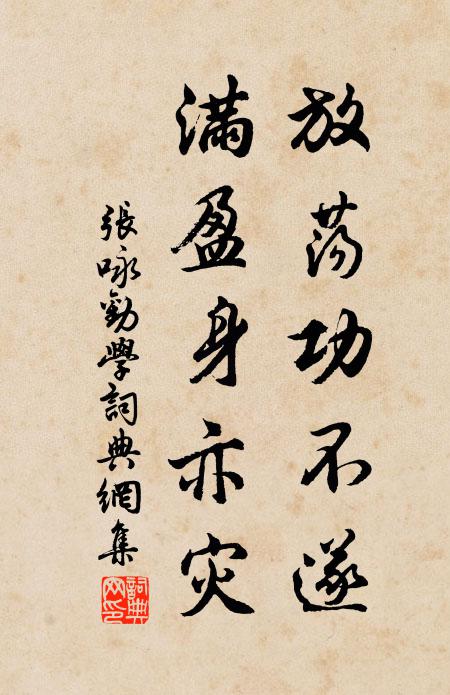 放蕩功不遂
滿盈身亦灾
張咏勸學詞典網集
詞典網印